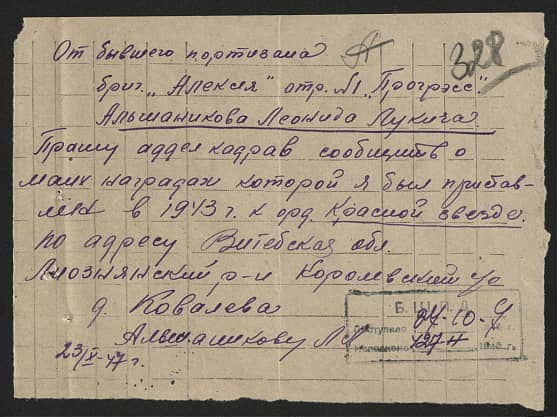 От бывшего портизана
328
бриг. „Алексея" отр. №1 „Прогрэсс".
Альшаникова Леонида Лукича
Прашу аддел кадрав сообщить о
маих наградах которой я был приставлен
лен в 1943 г. к орд. Красной звезде.
по адресу Витебская обл.
Лиозняский р-н Королевский с/с
д. Ковалева
Альшаникову Л.Л.
23/X-47 г.
Б.Ш.П.Д.
Поступило 27-10-